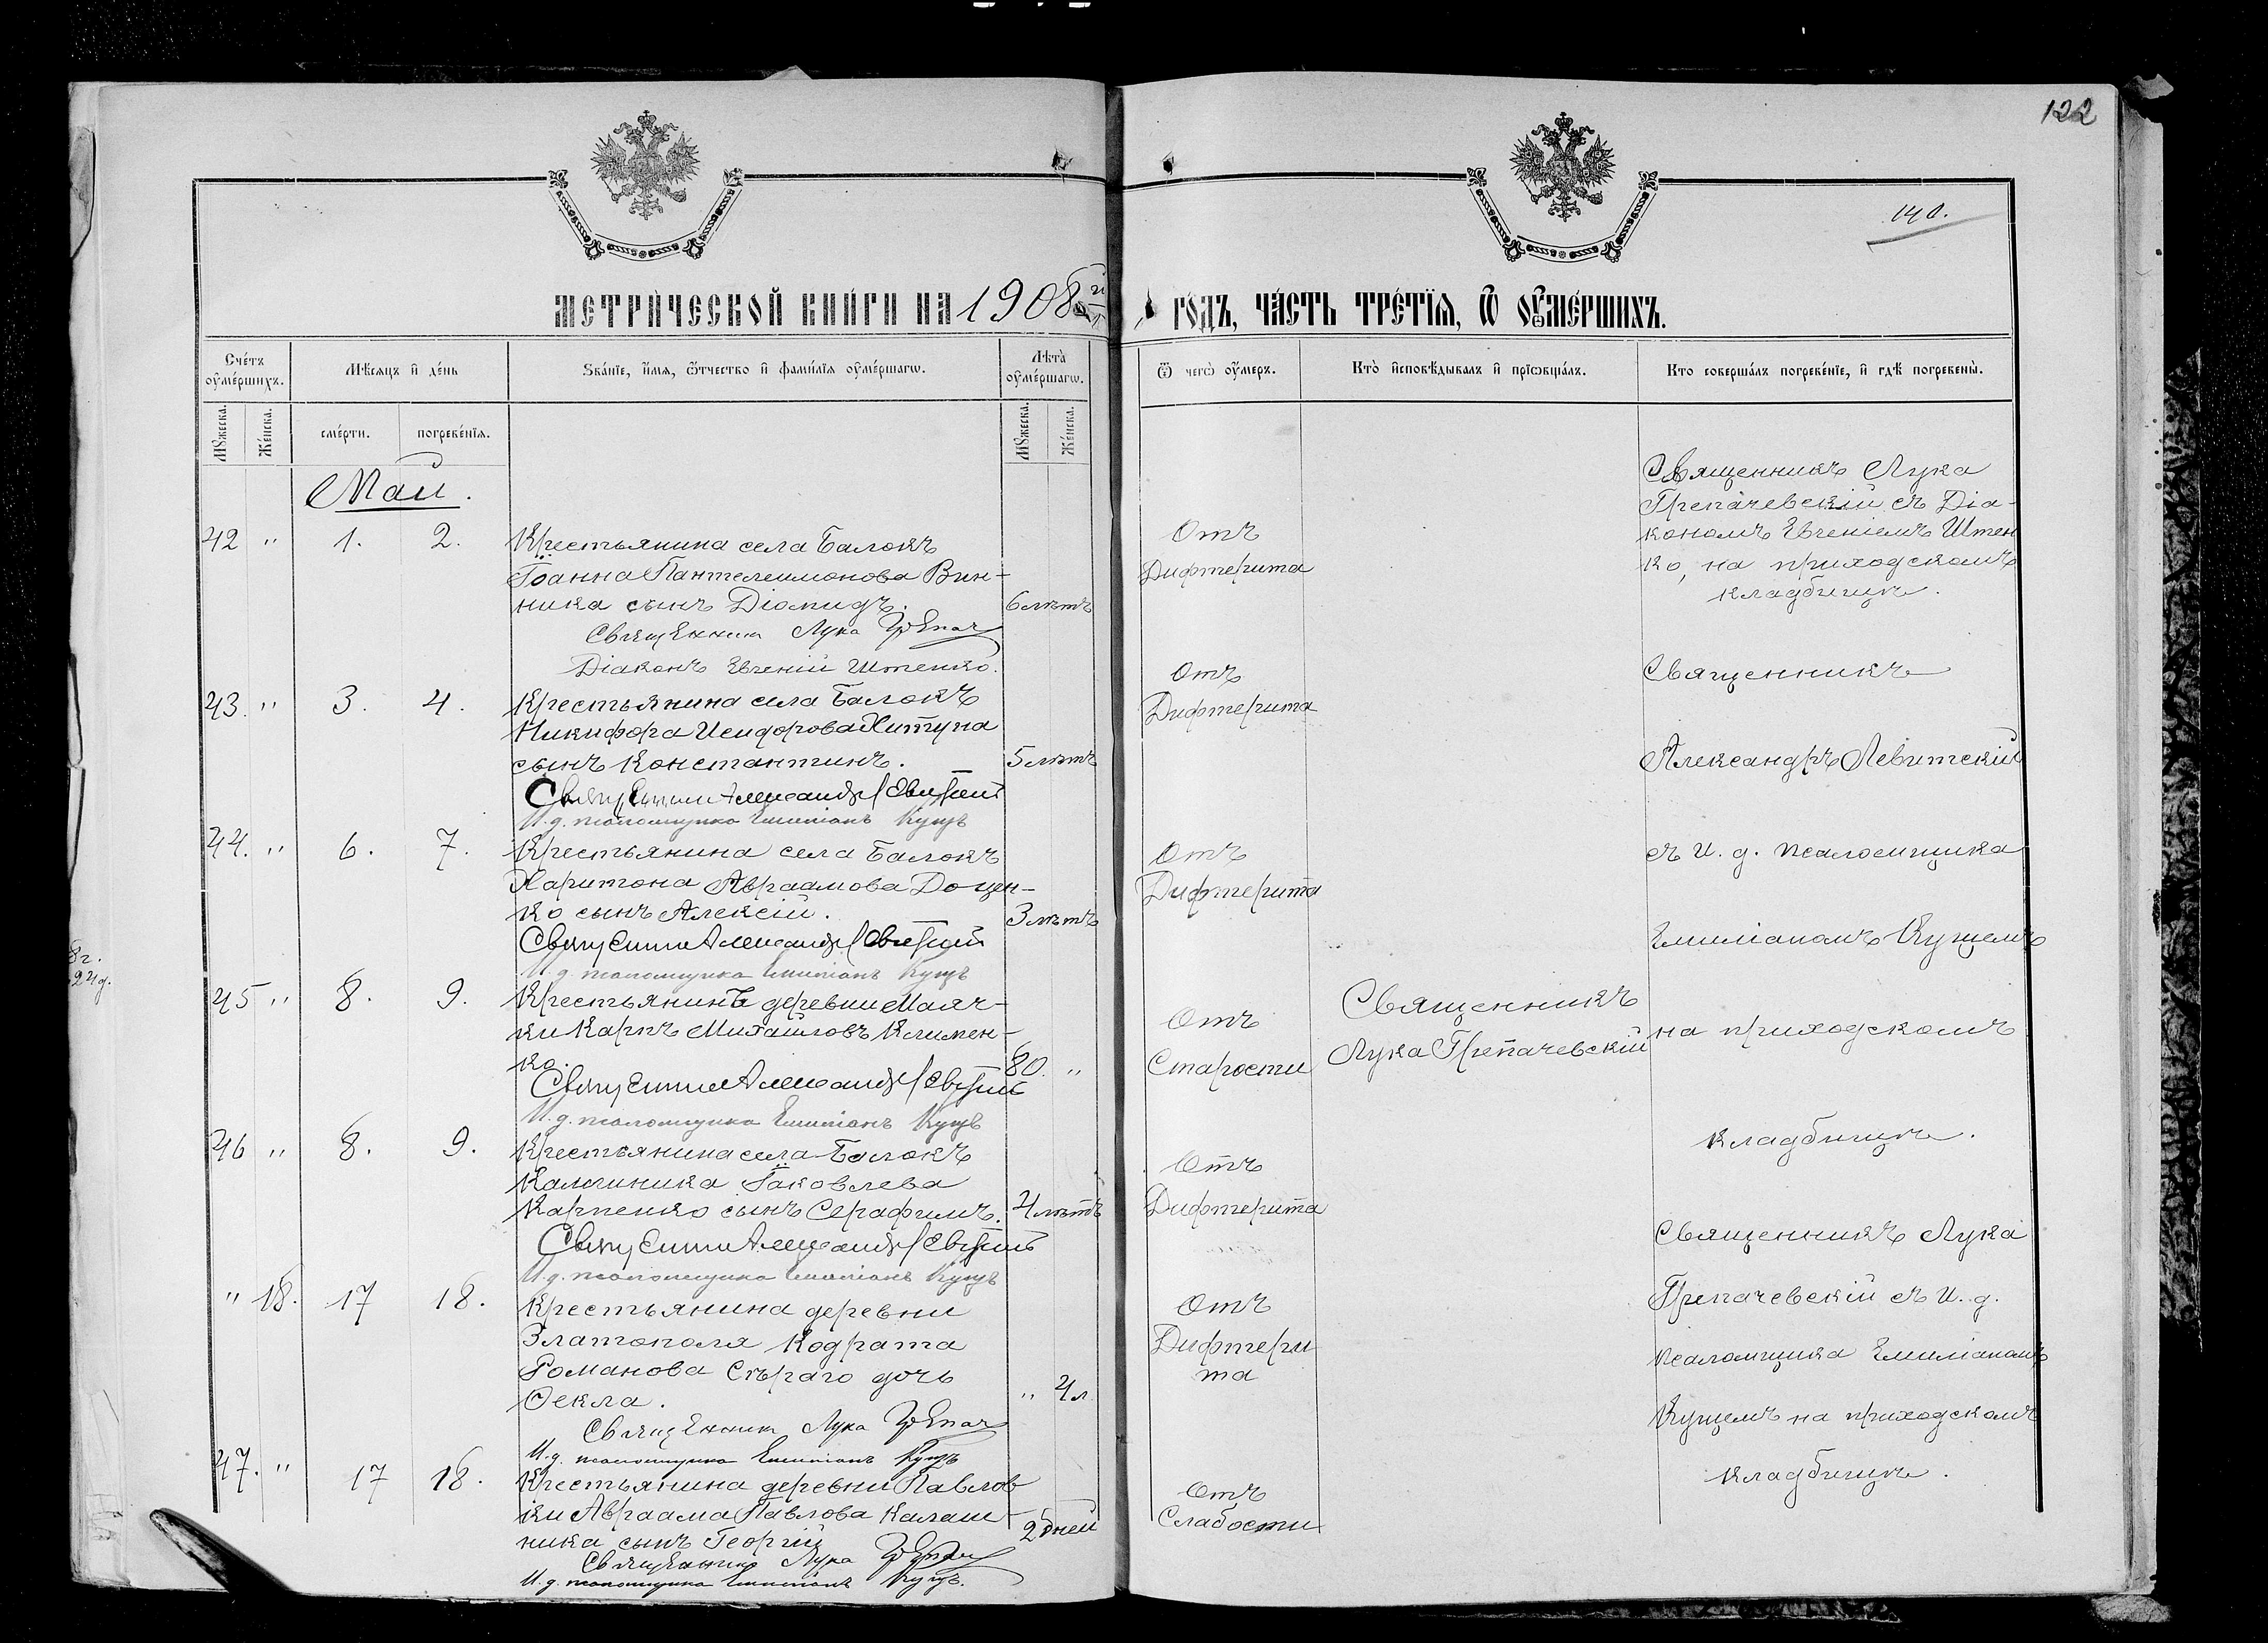 122
140.
МЕТРИЧЕСКОЙ КНИГИ НА 1908й ГОДЪ, ЧАСТЬ ТРЕТІЯ, Ѿ ОУМЕРШИХЪ.
Счетъ оумершихъ.
Мѣсяцъ и день
Званіе, имя, ѿтчество и фамилія оумершагѡ.
Лѣта оумершагѡ.
Ѿ чегѡ оумеръ.
Кто исповѣдывалъ и пріѡбщалъ.
Кто совершалъ погребеніе, и гдѣ погребены.
Мужеска.
Женска.
смерти.
погребенія.
Мужеска.
Женска.
Май.
42 " 1. 2.
Крестьянина села Балокъ
Іоанна Пантелеимонова Вин-
ника сынъ Діомидъ.
6 лѣтъ
Отъ
Дифтерита
Священникъ Лука
Трепачевскій съ Діа-
кономъ Евгеніемъ Штен
ко, на приходскомъ
кладбищѣ.
Священникъ Лука
Діаконъ Евгеній Штенко.
43. " 3. 4.
Крестьянина села Балокъ
Никифора Исидорова Хитуна
сынъ Константинъ.
5 лѣтъ
Отъ
Дифтерита
Священникъ
Александръ Левитскій
Священникъ Александръ Левитскій
И. д. псаломщика Емиліанъ Кущъ
44. " 6. 7.
Крестьянина села Балокъ
Харитона Авраамова Доцен-
ко сынъ Алексій.
3 лѣтъ
Отъ
Дифтерита
съ И. д. псаломщика
Емиліаномъ Кущемъ
Священникъ Александръ Левитскій
И. д. псаломщика Емиліанъ Кущъ
8г.
24д.
45 " 8. 9.
Крестьянинъ деревни Маяч-
ки Карпъ Михайловъ Климен-
ко.
80. "
Отъ
Старости
Священникъ
Лука Трепачевскій
на приходскомъ
Священникъ Александръ Левитскій
И. д. псаломщика Емиліанъ Кущъ
46 " 8. 9.
Крестьянина села Балокъ
Калиника Іаковлева
Карпенко сынъ Серафимъ.
4 лѣтъ
Отъ
Дифтерита
кладбищѣ.
Священникъ Александръ Левитскій
И. д. псаломщика Емиліанъ Кущъ
" 18. 17 18.
Крестьянина деревни
Златополя Кодрата
Романова Сѣраго дочь
Ѳекла.
" 4 л.
Отъ
Дифтери
та
Священникъ Лука
Трепачевскій съ И. д.
псаломщика Емиліаномъ
Кущемъ на приходскомъ
кладбищѣ.
Священникъ Лука
И. д. псаломщика Емиліанъ Кущъ
47. " 17 18.
Крестьянина деревни Павлов
ки Авраама Павлова Калаш-
ника сынъ Георгій
2 дней
Отъ
Слабости
Священникъ Лука
И. д. псаломщика Емиліанъ Кущъ.